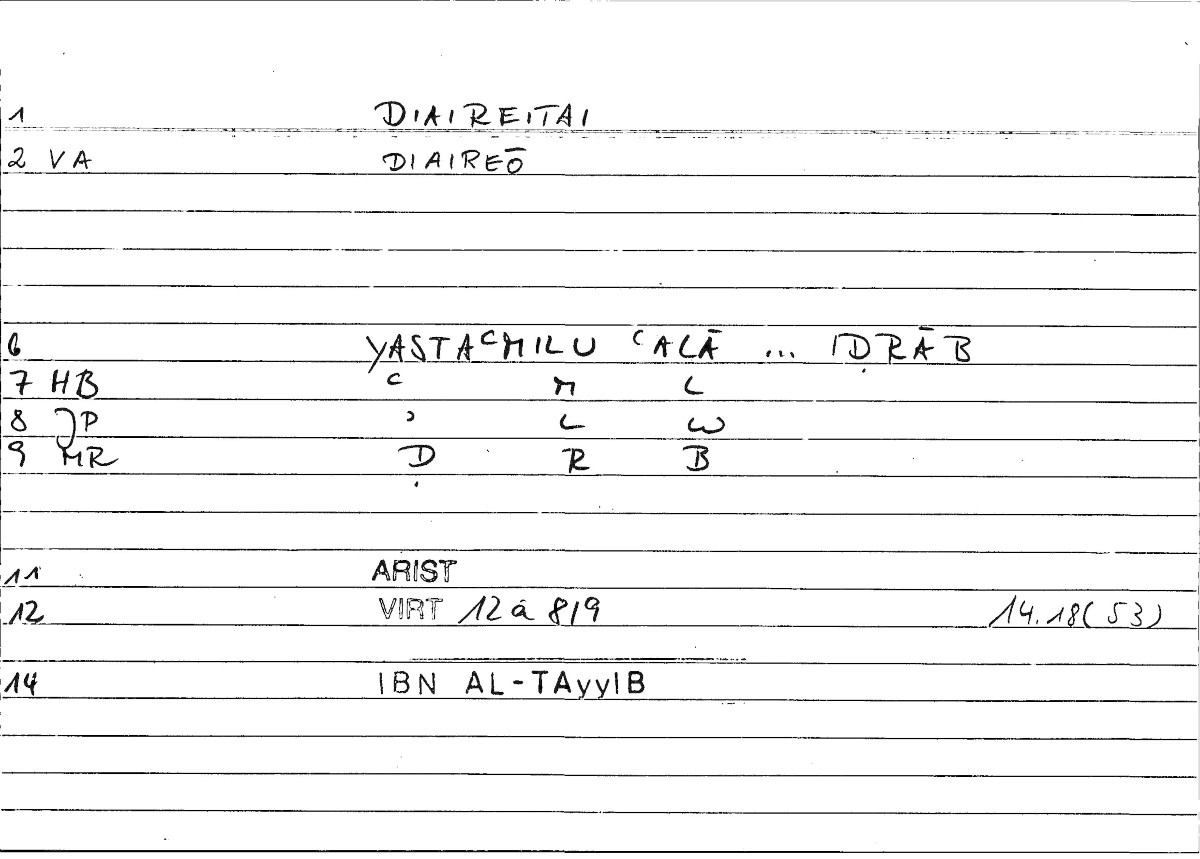 1 DIAIREITAI
2 VA DIAIREŌ
6 YASTAᶜMILU ᶜALĀ ... IḌRĀB
7 HB ᶜ M L
8 JP ʾ L W
9 MR Ḍ R B
11 ARIST
12 VIRT 12 a 8/9 14.18(53)
14 IBN AL-TAyyIB